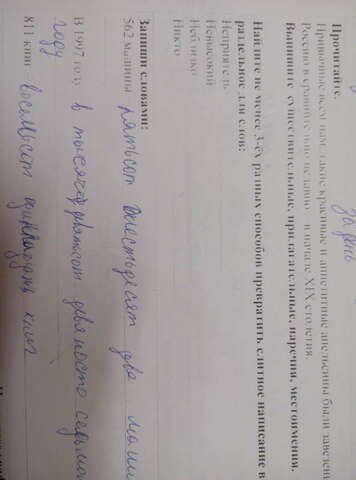 за день
Прочитайте.
Привычные всем нам, такие красивые и аппетитные апельсины были завезены
Россию в сравнительно недавно в начале XIX столетия.
Выпишите существительные, прилагательные, наречия, местоимения.
Найдите не менее 3-ёх разных способов превратить слитное написание в
раздельное для слов:
Неприятель
Невысокий
Неблизко
Никто
Запиши словами:
562 машины пятьсот шестьдесят два маши
В 1997 году в тысяча девятьсот девяносто седьмом
году
811 книг восемьсот одиннадцать книг